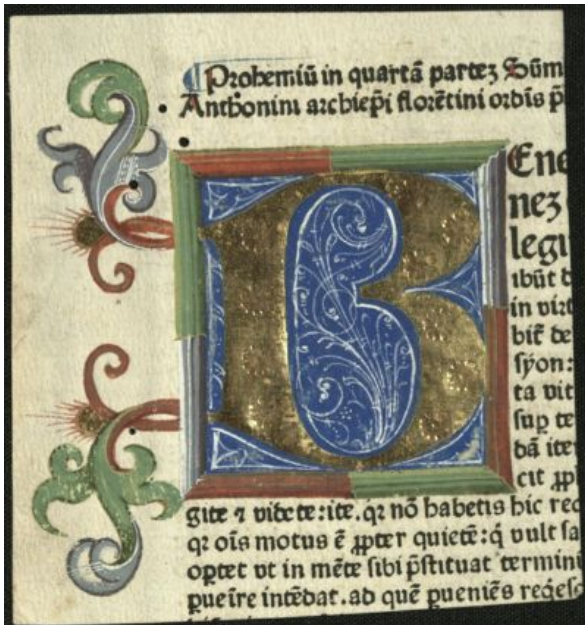 Prohemiū in quartā partez Sūm
Anthonini archiep̄i florētini ordīs p̄
B
Ene
nez
legi
ibūt d
in virt
bit̄ de
sȳon:
ta vit
suꝑ te
dā ite
cit ꝓp
gite ⁊ videte: ite. qꝛ nō habetis hic req
qꝛ oīs motus ē ꝓpter quietē: q̇ vult sa
optet vt in mēte sibi p̄stituat termin
ꝑueīre intēdat. ad quē ꝑueniēs reqesc